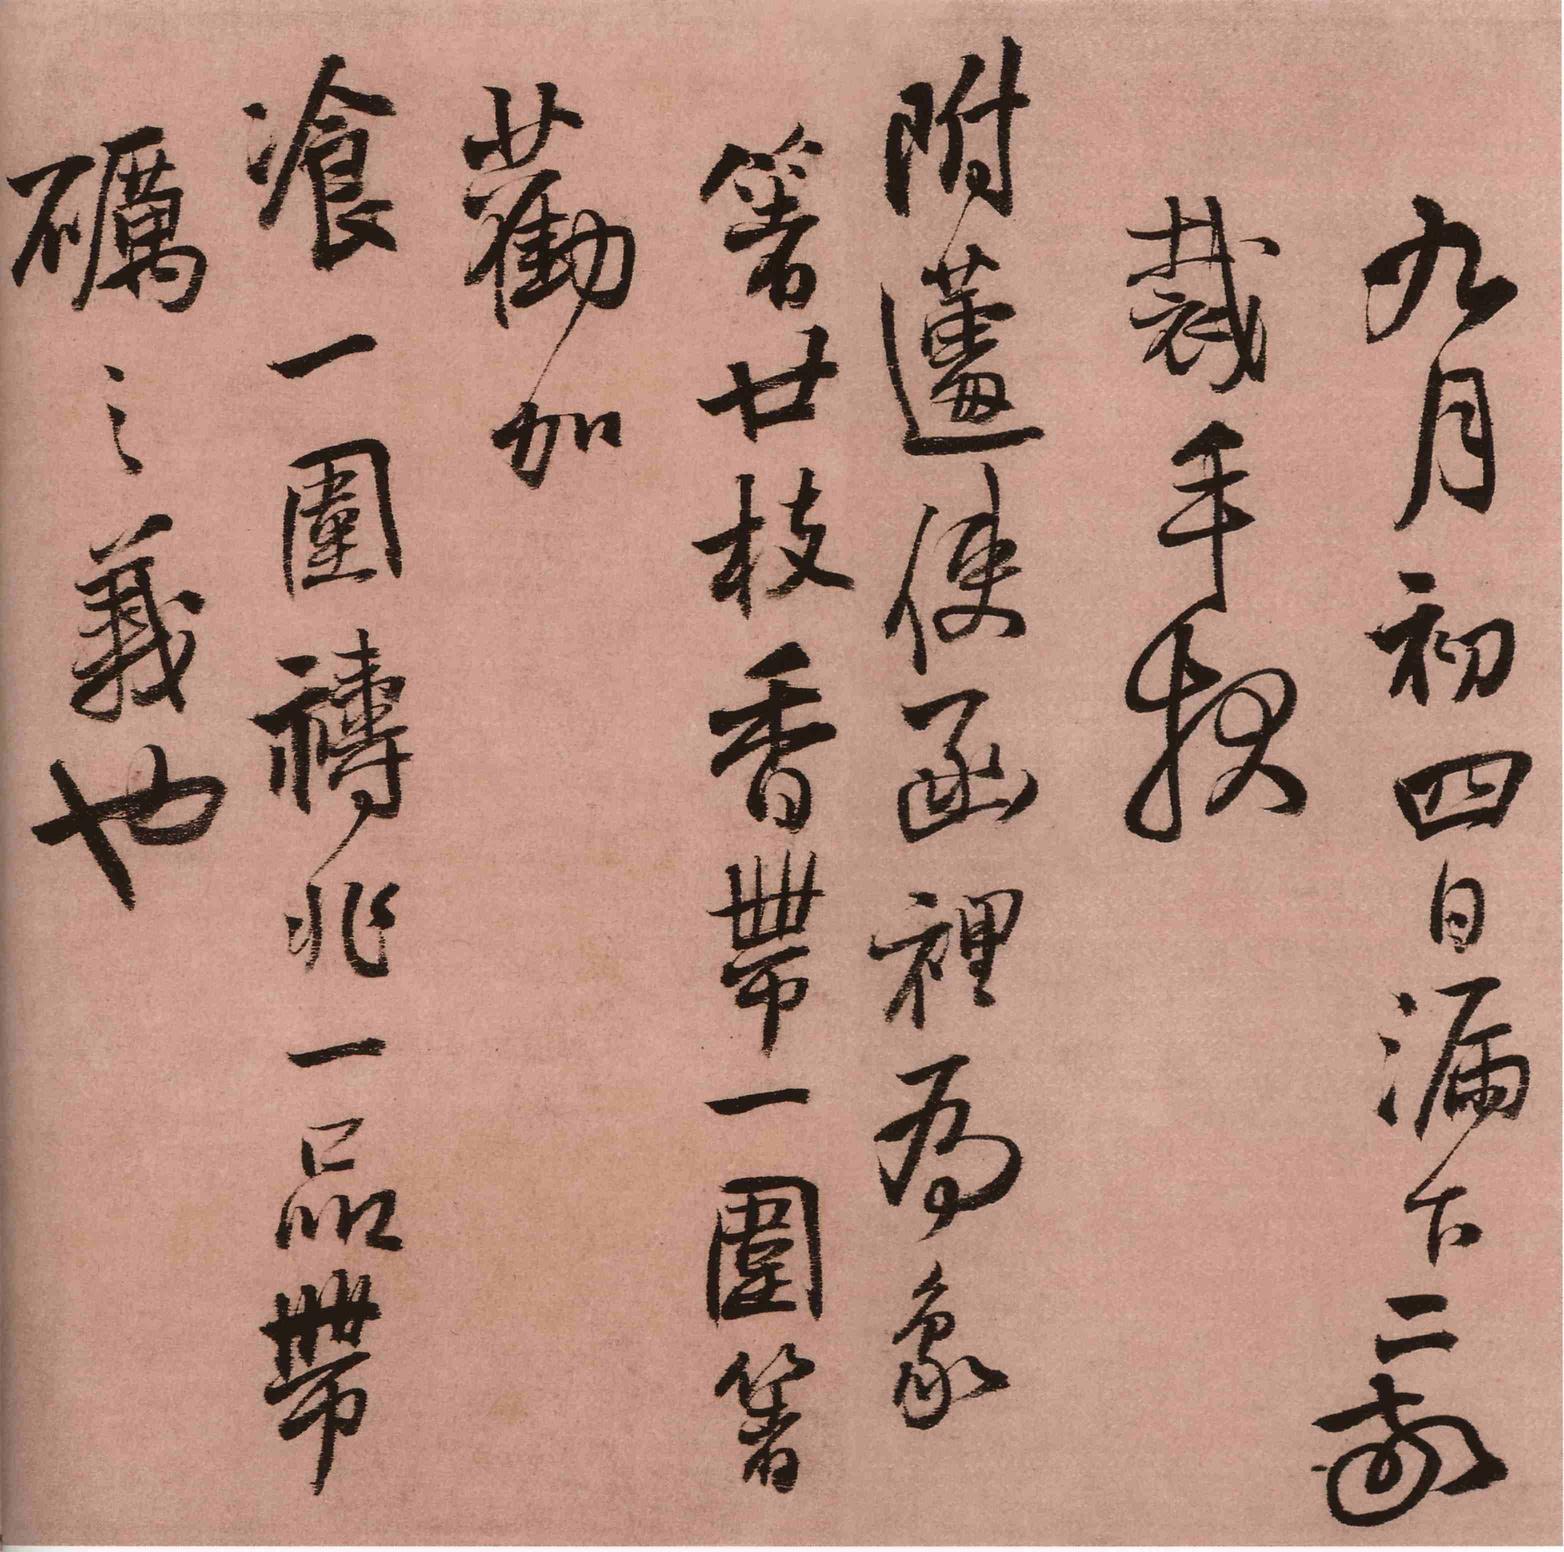 九月初四日漏下二鼓
裁手報
附蘧使函裡為象
箸廿枝香帶一圍箸
蘄勸加
飡一圍禱兆一品帶
礪之義也